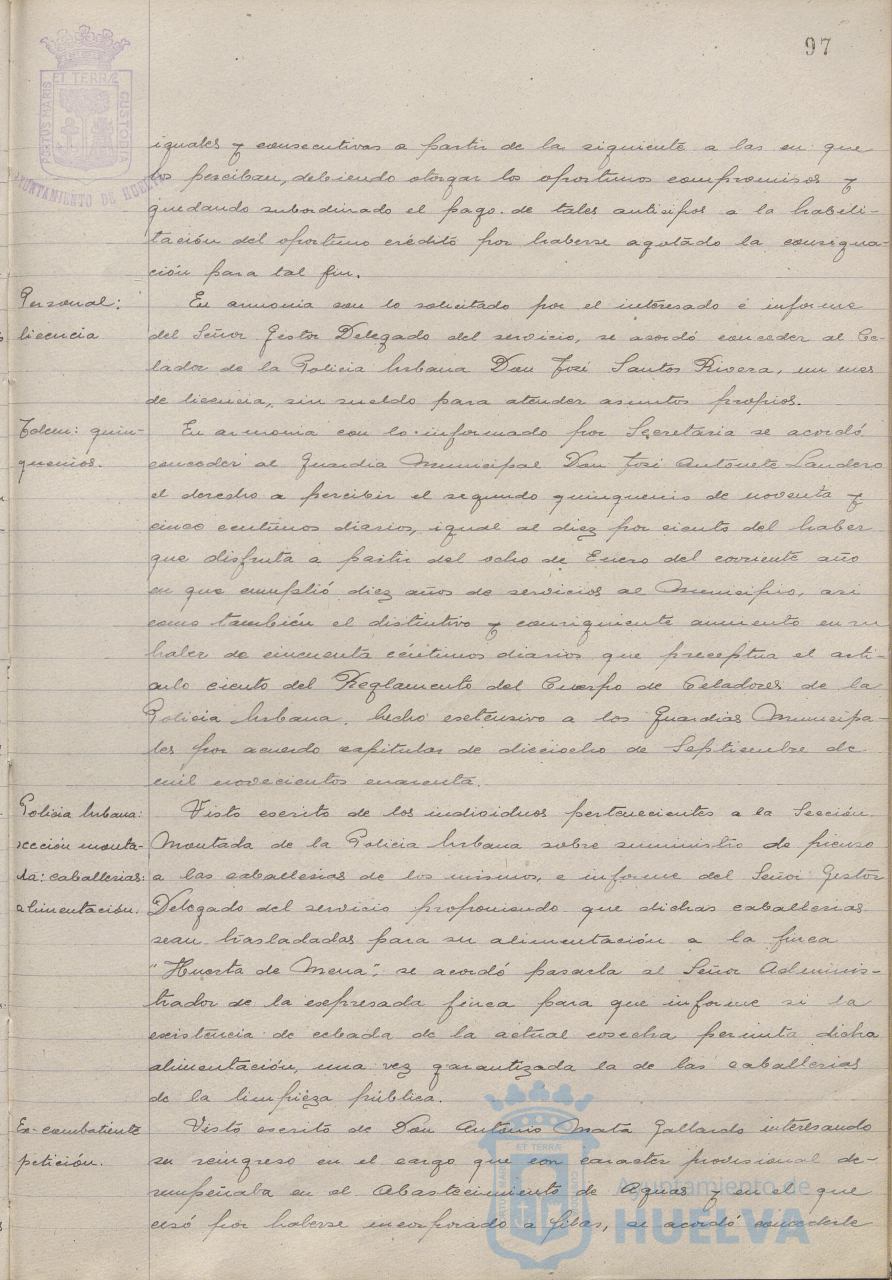 97
PORTUS MARIS ET TERRÆ CUSTODIA
AYUNTAMIENTO DE HUELVA
iguales y consecutivas a partir de la siguiente a las en que
los perciban, debiendo otorgar los oportunos compromisos y
quedando subordinado el pago de tales anticipos a la habili-
tación del oportuno crédito por haberse agotado la consigna-
ción para tal fin.
Personal:
licencia
En armonia con lo solicitado por el interesado é informe
del Señor Gestor Delegado del servicio, se acordó conceder al Ce-
lador de la Policia Urbana Don José Santos Rivera, un mes
de licencia, sin sueldo para atender asuntos propios.
Idem: quin-
quenios.
En armonia con lo informado por Secretaria se acordó
conceder al Guardia Municipal Don José Antonete Landero
el derecho a percibir el segundo quinquenio de noventa y
cinco centimos diarios, igual al diez por ciento del haber
que disfruta a partir del ocho de Enero del corriente año
en que cumplió diez años de servicios al Municipio, asi
como también el distintivo y consiguiente aumento en su
haber de cincuenta céntimos diarios que preceptua el arti-
culo ciento del Reglamento del Cuerpo de Celadores de la
Policia Urbana, hecho extensivo a los Guardias Municipa-
les por acuerdo capitular de dieciocho de Septiembre de
mil novecientos cuarenta.
Policia Urbana:
sección monta-
da: caballerias:
alimentación.
Visto escrito de los individuos pertenecientes a la Sección
Montada de la Policia Urbana sobre suministro de pienso
a las caballerias de los mismos, e informe del Señor Gestor
Delegado del servicio proponiendo que dichas caballerias
sean trasladadas para su alimentación a la finca
"Huerta de Mena", se acordó pasarla al Señor Adminis-
trador de la expresada finca para que informe si la
existencia de cebada de la actual cosecha permita dicha
alimentación, una vez garantizada la de las caballerias
de la limpieza pública.
Ex-combatiente
petición.
Visto escrito de Don Antonio Mata Gallardo interesando
su reingreso en el cargo que con caracter provisional de-
sempeñaba en el Abastecimiento de Aguas y en el que
cesó por haberse incorporado a filas, se acordó concederle
Ayuntamiento de
HUELVA